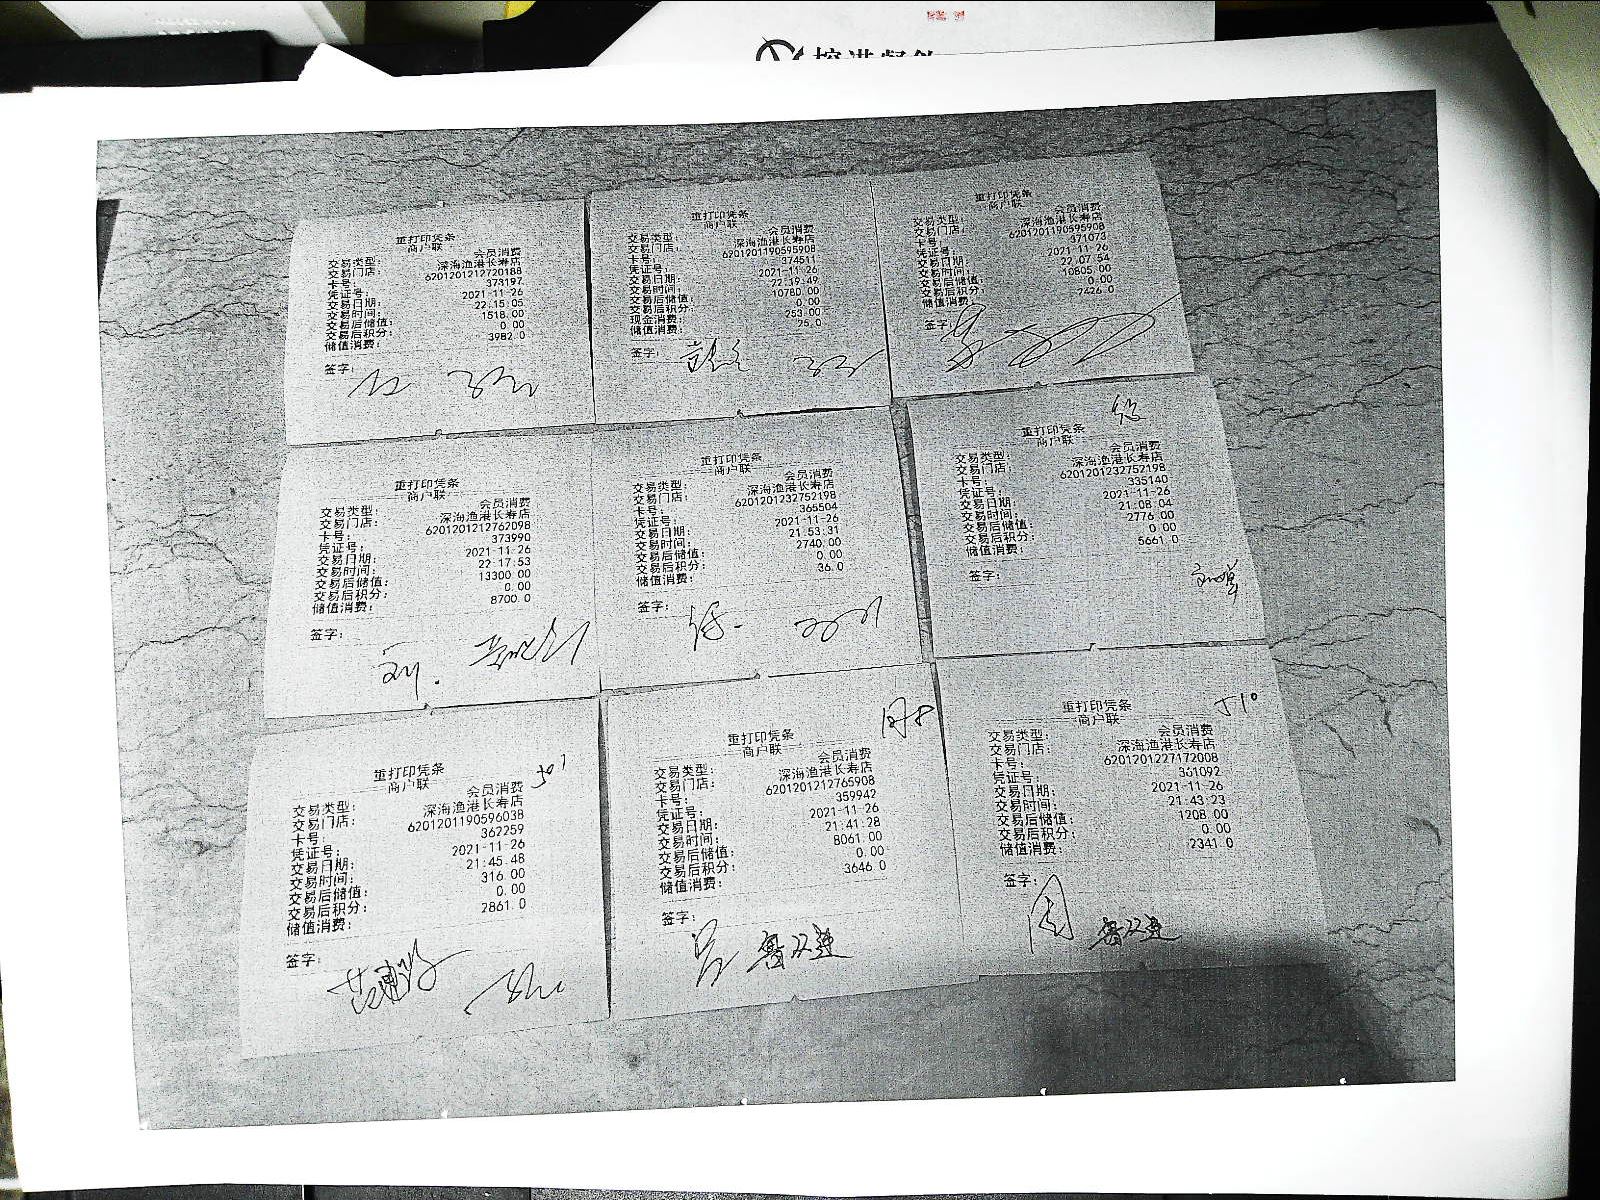 重打印凭条
商户联
交易类型: 会员消费
交易门店: 深海渔港长寿店
卡号: 6201201212720188
凭证号: 373197
交易日期: 2021-11-26
交易时间: 22:15:05
交易后储值: 1518.00
交易后积分: 0.00
储值消费: 3982.0
签字:
重打印凭条
商户联
交易类型: 会员消费
交易门店: 深海渔港长寿店
卡号: 6201201190595908
凭证号: 374511
交易日期: 2021-11-26
交易时间: 22:19:49
交易后储值: 10780.00
交易后积分: 0.00
现金消费: 253.00
储值消费: 25.0
签字:
重打印凭条
商户联
交易类型: 会员消费
交易门店: 深海渔港长寿店
卡号: 6201201190595908
凭证号: 371073
交易日期: 2021-11-26
交易时间: 22:07:54
交易后储值: 10805.00
交易后积分: 0.00
储值消费: 7426.0
签字:
重打印凭条
商户联
交易类型: 会员消费
交易门店: 深海渔港长寿店
卡号: 6201201212762098
凭证号: 373990
交易日期: 2021-11-26
交易时间: 22:17:53
交易后储值: 13300.00
交易后积分: 0.00
储值消费: 8700.0
签字:
重打印凭条
商户联
交易类型: 会员消费
交易门店: 深海渔港长寿店
卡号: 6201201232752198
凭证号: 365504
交易日期: 2021-11-26
交易时间: 21:53:31
交易后储值: 2740.00
交易后积分: 0.00
储值消费: 36.0
签字:
重打印凭条
商户联
交易类型: 会员消费
交易门店: 深海渔港长寿店
卡号: 6201201232752198
凭证号: 335140
交易日期: 2021-11-26
交易时间: 21:08:04
交易后储值: 2776.00
交易后积分: 0.00
储值消费: 5661.0
签字:
501
重打印凭条
商户联
交易类型: 会员消费
交易门店: 深海渔港长寿店
卡号: 6201201190596038
凭证号: 362259
交易日期: 2021-11-26
交易时间: 21:45:48
交易后储值: 316.00
交易后积分: 0.00
储值消费: 2861.0
签字:
重打印凭条
商户联
交易类型: 会员消费
交易门店: 深海渔港长寿店
卡号: 6201201212765908
凭证号: 359942
交易日期: 2021-11-26
交易时间: 21:41:28
交易后储值: 8061.00
交易后积分: 0.00
储值消费: 3646.0
签字:
510
重打印凭条
商户联
交易类型: 会员消费
交易门店: 深海渔港长寿店
卡号: 6201201227172008
凭证号: 361092
交易日期: 2021-11-26
交易时间: 21:43:23
交易后储值: 1208.00
交易后积分: 0.00
储值消费: 2341.0
签字:
周